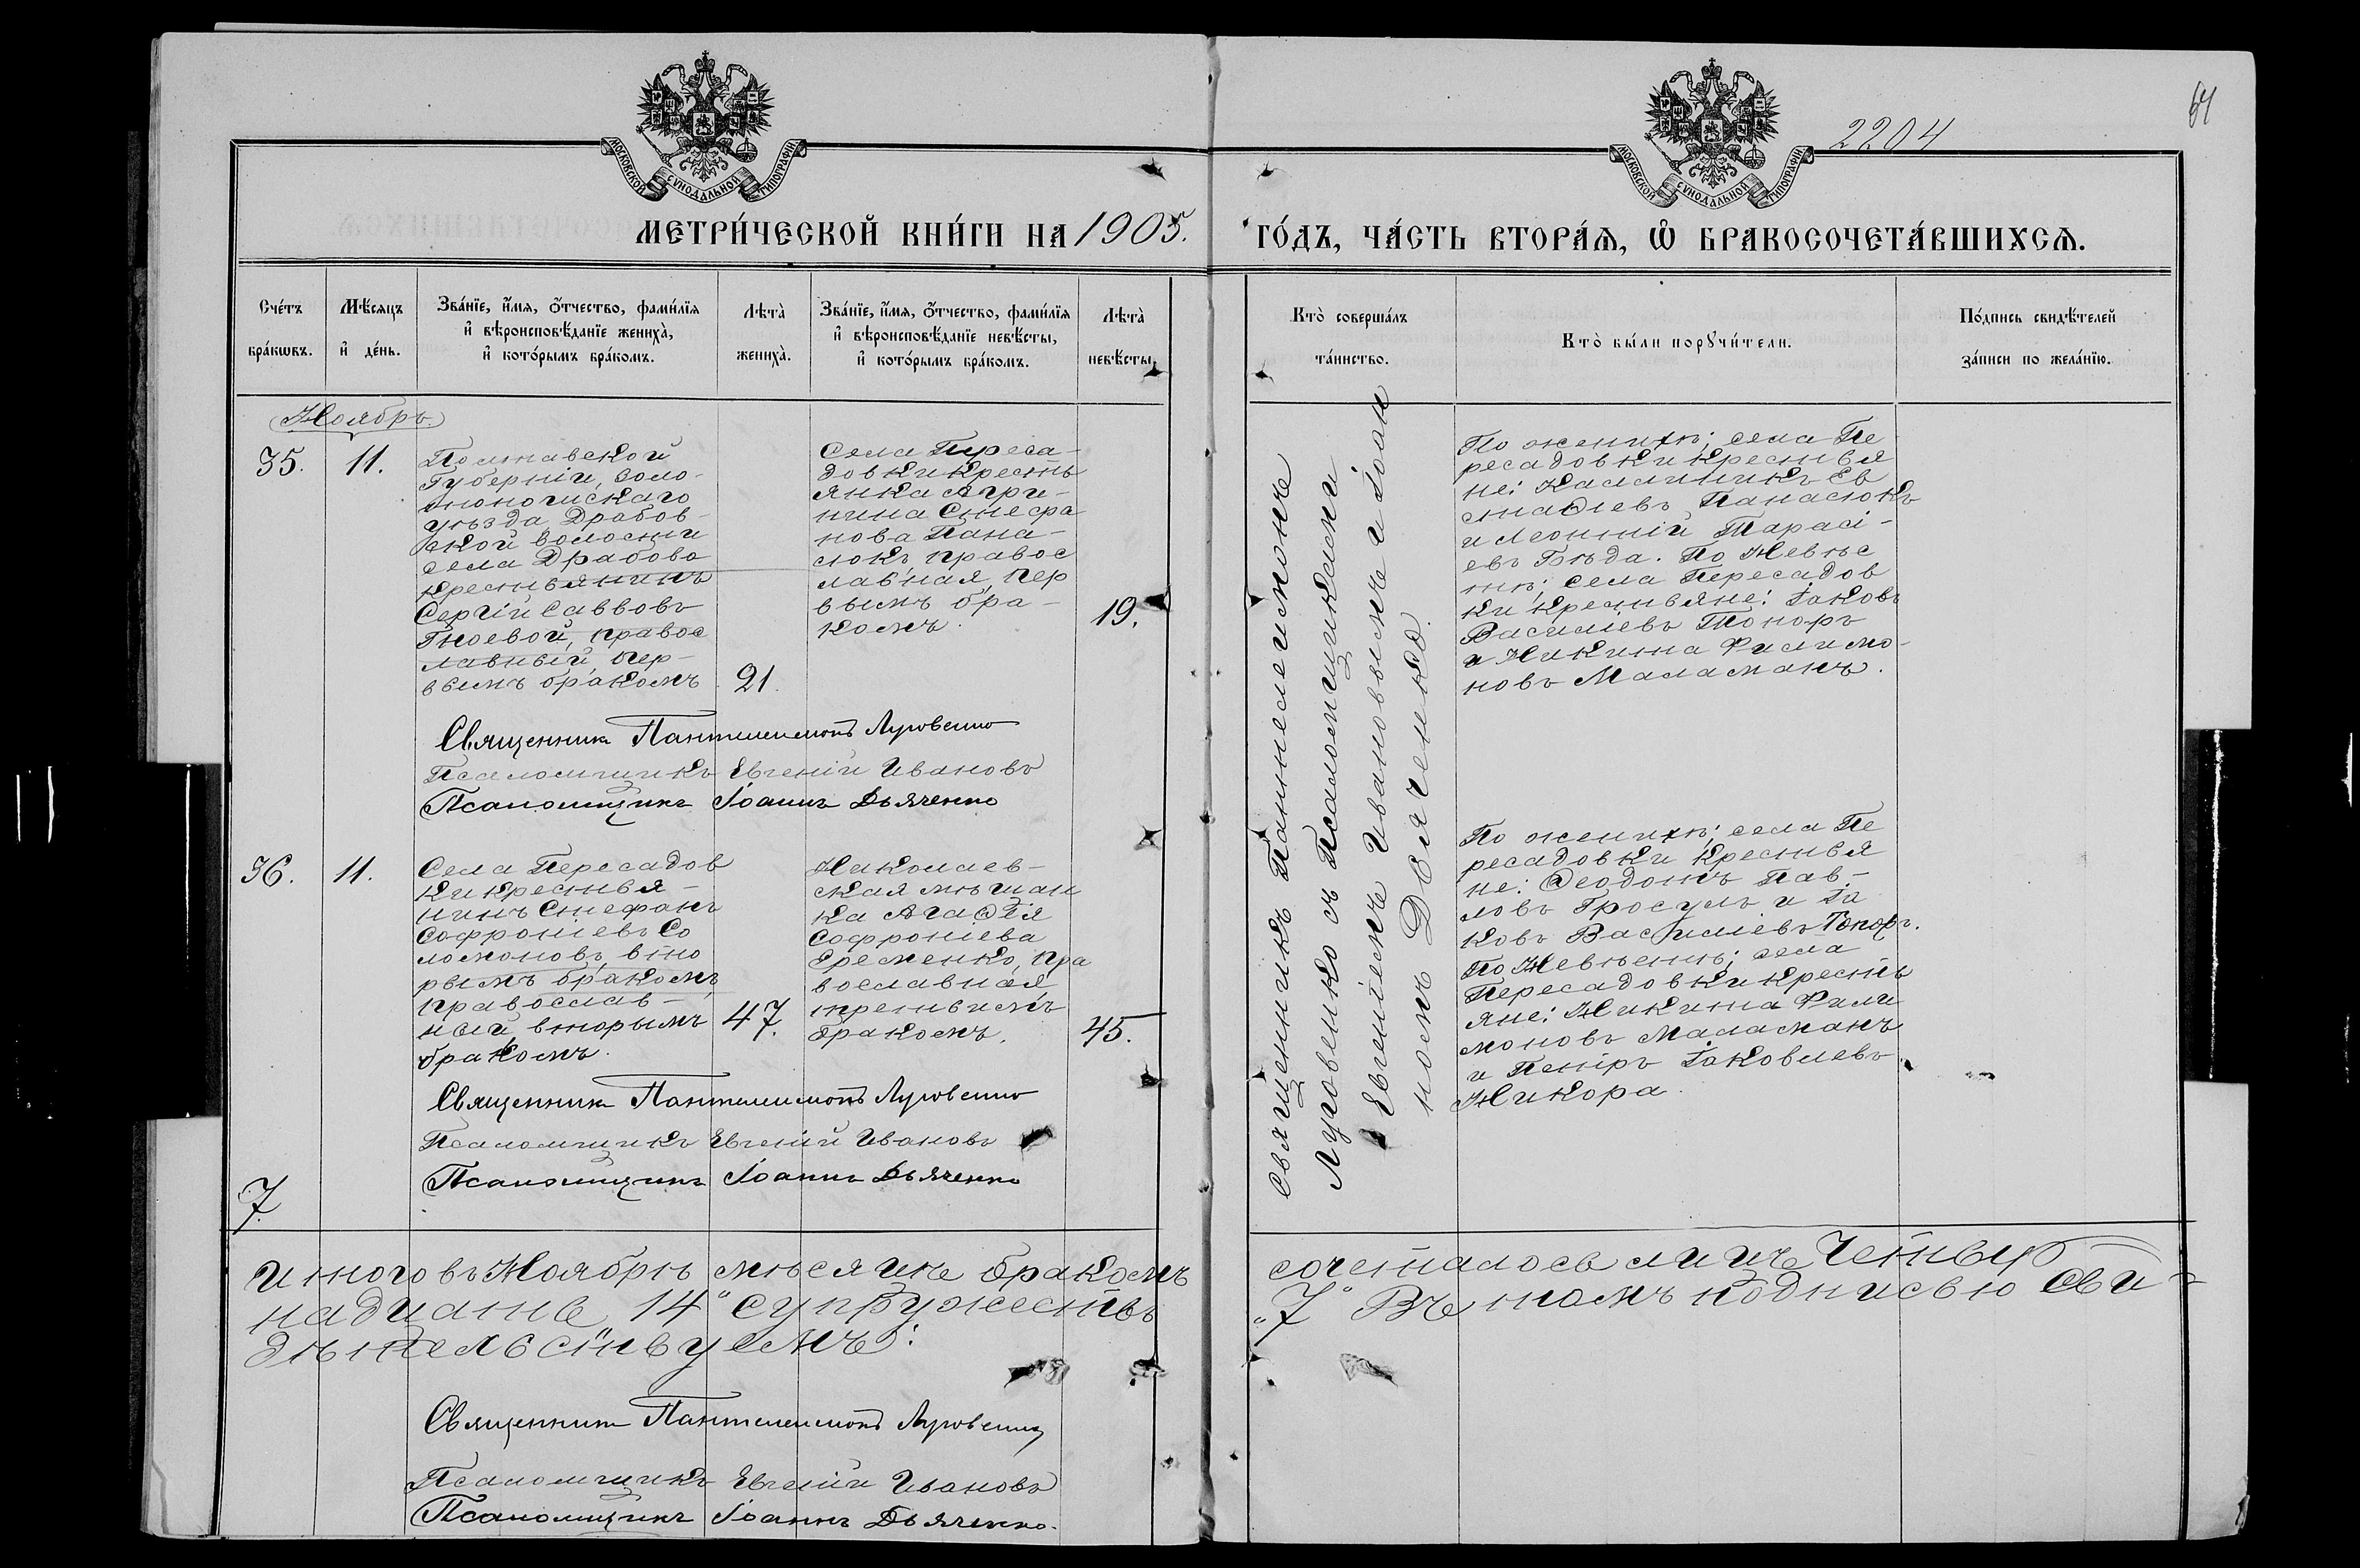 2204
64
МОСКОВСКОЙ СѴНОДАЛЬНОЙ ТИПОГРАФІИ
МОСКОВСКОЙ СѴНОДАЛЬНОЙ ТИПОГРАФІИ
МЕТРИ́ЧЕСКОЙ КНИ́ГИ НА 1905.
ГО́ДЪ, ЧА́СТЬ ВТОРА́Ѧ, Ѽ БРАКОСОЧЕТА́ВШИХСѦ.
Сче́тъ бра́кѡвъ.
Мѣ́сяцъ и҆ де́нь.
Зва́нїе, и҆́мя, ѻ҆́тчество, фами́лїя
и҆ вѣроисповѣ́данїе жениха̀,
и҆ кото́рымъ бра́комъ.
Лѣта̀ жениха̀.
Зва́нїе, и҆́мя, ѻ҆́тчество, фами́лїя
и҆ вѣроисповѣ́данїе невѣ́сты,
и҆ кото́рымъ бра́комъ.
Лѣта̀ невѣ́сты.
Кто̀ соверша́лъ
та́инство.
Кто̀ бы́ли порꙋчи́тели.
По́дпись свидѣ́телей
за́писи по жела́нїю.
Ноябрь.
35.
11.
Полтавской
Губерніи, Золо-
тоношскаго
уѣзда Драбов-
ской волости
села Драбова
крестьянинъ
Сергій Саввовъ
Гноевой, правос
лавный, пер-
вымъ бракомъ
21.
Села Переса-
довки крестья
янка Агри-
пина Стефа
нова Пана-
сюкъ, правос
лавная, пер
вымъ бра-
комъ.
19.
Священникъ Пантелеимонъ
Луговенко съ Псаломщиками
Евгеніемъ Ивановымъ и Іоан
номъ Дьяченко.
По женихѣ; села Пе
ресадовки крестья
не: Каллиникъ Ев
стафіевъ Панасюкъ
и Леонтій Тарасі-
евъ Бѣда. По Невѣс
тѣ; села Пересадов
ки крестьяне: Іаковъ
Василіевъ Топоръ
и Никита Филимо-
новъ Маламанъ.
Священникъ Пантелеимонъ Луговенко
Псаломщикъ Евгеній Ивановъ
Псаломщикъ Іоаннъ Дьяченко
36.
11.
Села Пересадов
ки крестья-
нинъ Стефанъ
Софроніевъ Со
ломоновъ, вто
рымъ бракомъ,
православ-
ный, вторымъ
бракомъ.
47.
Николаев-
ская мѣщан
ка Агаѳія
Софроніева
Еременко, пра
вославная
третьимъ
бракомъ.
45.
По женихѣ; села Пе
ресадовки крестья
не: Ѳеодотъ Пав-
ловъ Гросулъ и Іа
ковъ Василіевъ Топоръ.
По Невѣстѣ; села
Пересадовки крестьь
яне: Никита Фили
моновъ Маламанъ
и Петръ Іаковлевъ
Никора.
Священникъ Пантелеимонъ Луговенко
Псаломщикъ Евгеній Ивановъ
Псаломщикъ Іоаннъ Дьяченко
7.
Итого въ Ноябрѣ мѣсяцѣ бракомъ
сочеталось лицъ Четыр
надцать „14“ супружествъ
„7“ Въ томъ подписью сви-
дѣтельствуемъ:
Священникъ Пантелеимонъ Луговенко
Псаломщикъ Евгеній Ивановъ
Псаломщикъ Іоаннъ Дьяченко.